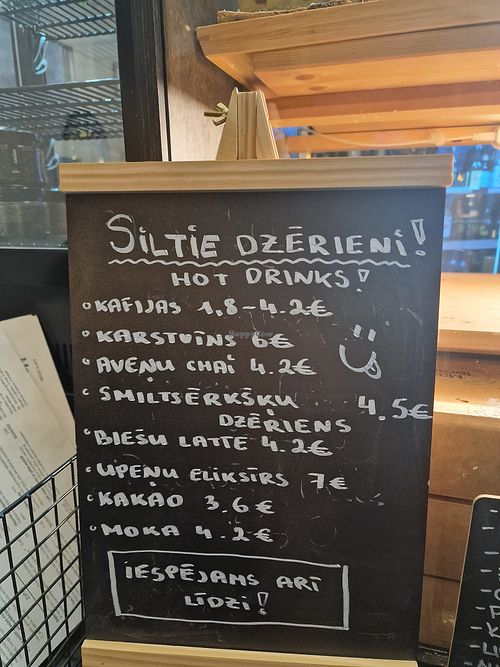 SILTIE DZĒRIENI!
HOT DRINKS!
KAFIJAS 1,8-4.2€
KARSTVĪNS 6€
AVEŅU CHAI 4.2€
SMILTSĒRKŠĶU 4.5€
DZĒRIENS
BIEŠU LATTE 4.2€
UPEŅU ELIKSĪRS 7€
KAKAO 3.6€
MOKA 4.2€
IESPĒJAMS ARĪ
LĪDZI!
HappyCow